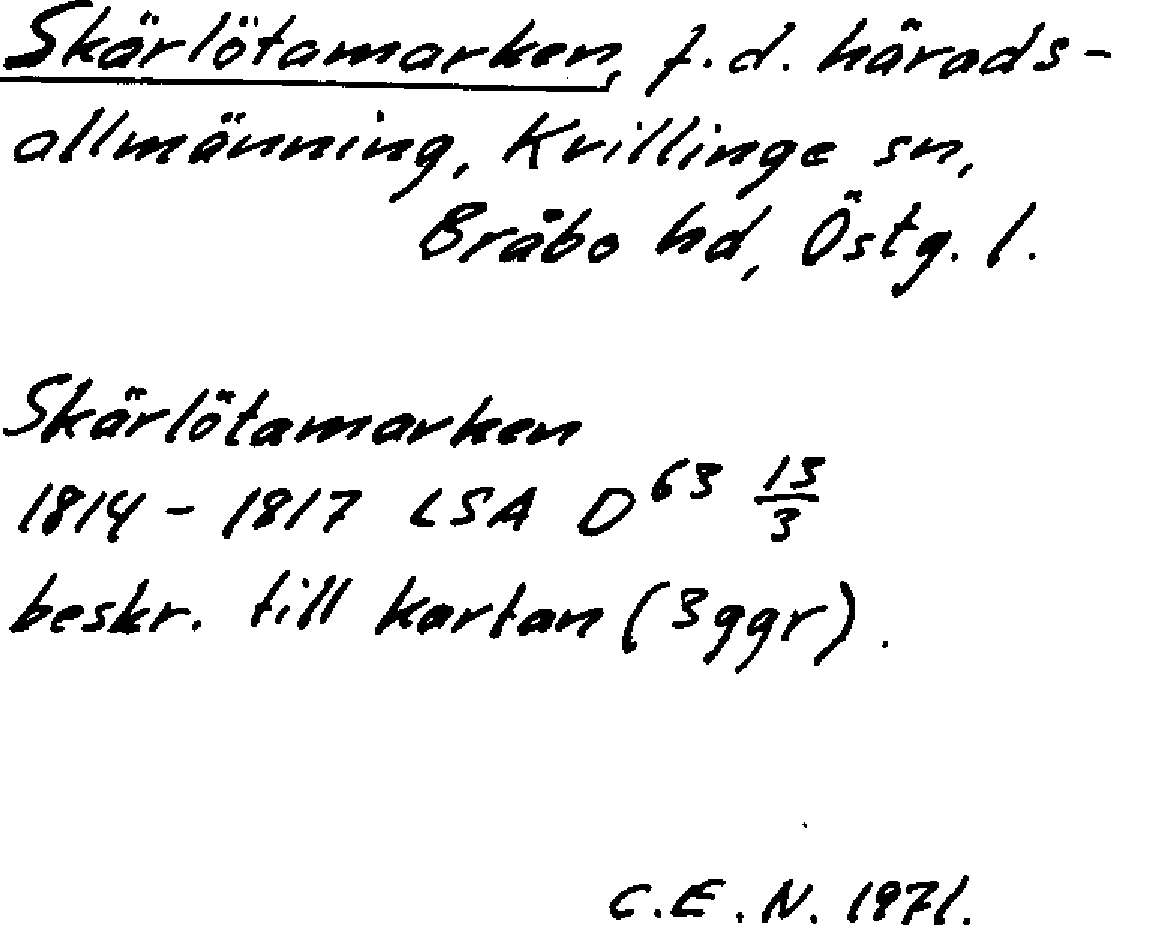 Skärlötamarken, f.d. härads-
allmänning, Kvillinge sn,
Bråbo hd, Östg. l.
Skärlötamarken
1814 - 1817 LSA D⁶³ 13/3
beskr. till kartan (3ggr).
C.E.N. 1971.